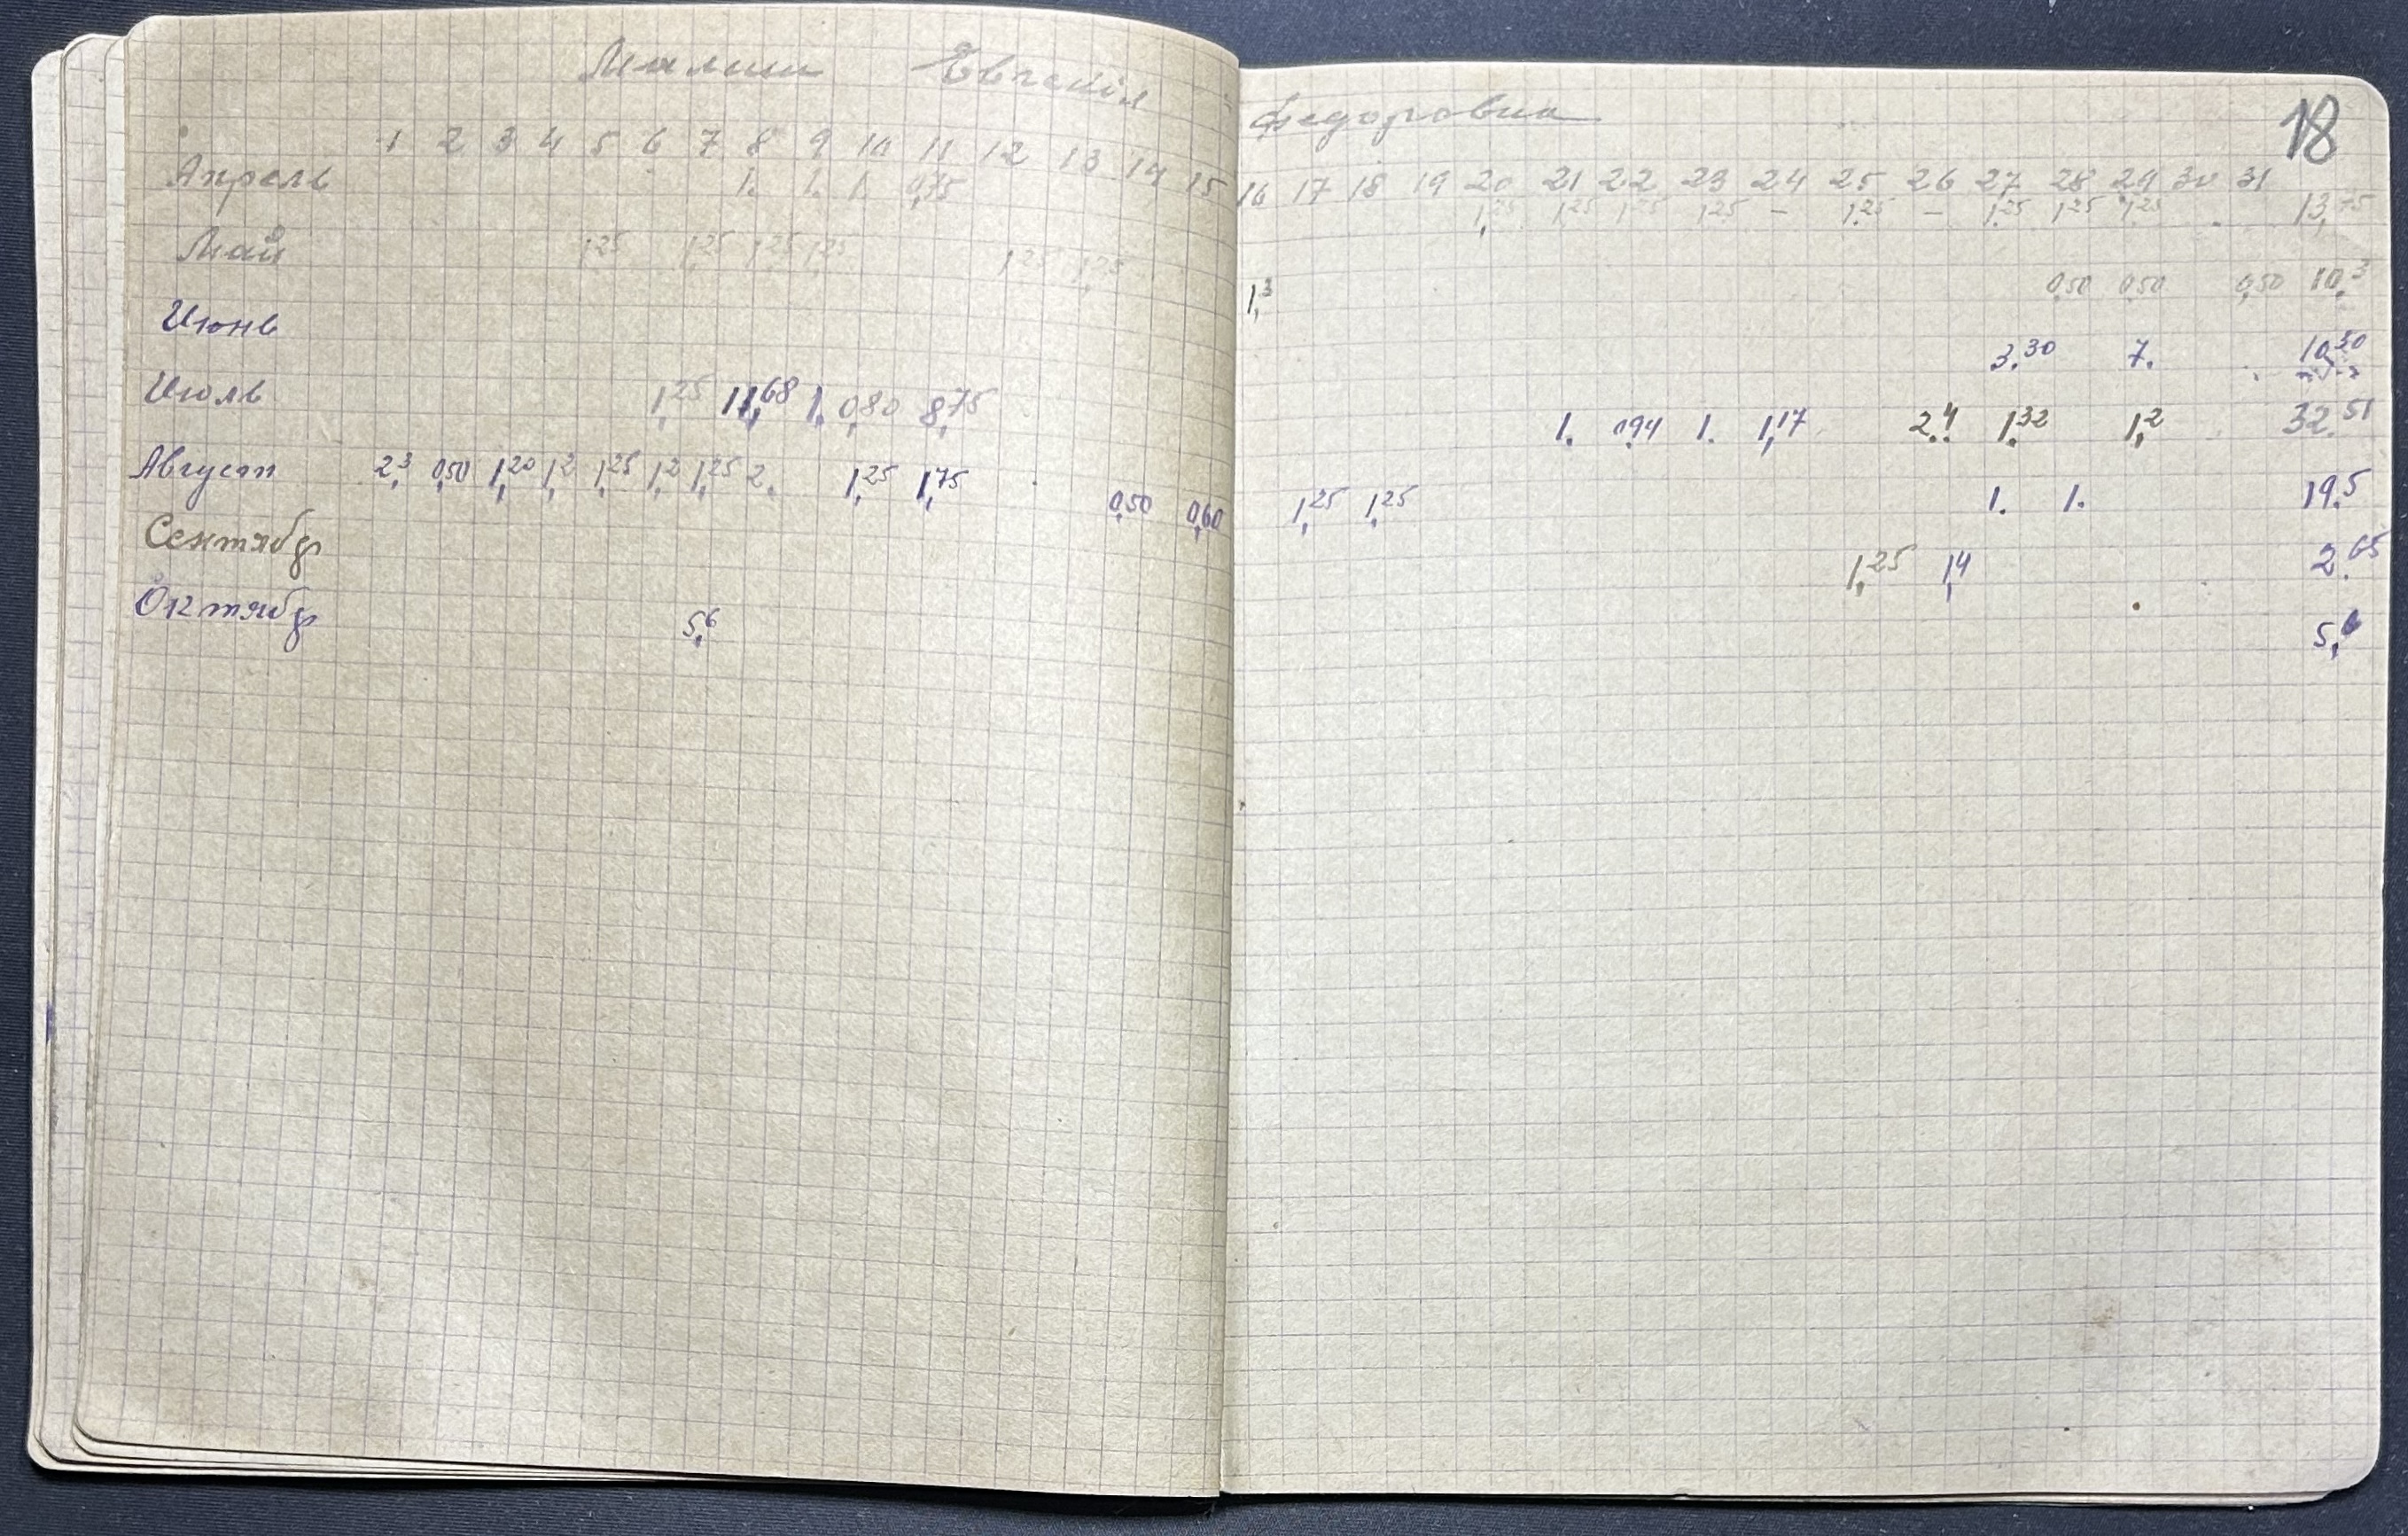 Малиш Евгения Федоровна 18
1 2 3 4 5 6 7 8 9 10 11 12 13 14 15 16 17 18 19 20 21 22 23 24 25 26 27 28 29 30 31
Апрель 1. 1. 1. 0,75 1,25 1,25 1,25 1,25 — 1,25 — 1,25 1,25 1,25 13,75
Май 1,25 1,25 1,25 1,25 1,25 1,25 1,3 0,50 0,50 0,50 10,3
Июнь 3.30 7. 10.30
Июль 1,25 11,68 1. 0,80 8,75 1. 0,94 1. 1,17 2.4 1,32 1,2 32.51
Август 2,3 0,50 1,20 1,2 1,25 1,2 1,25 2. 1,25 1,75 0,50 0,60 1,25 1,25 1. 1. 19.5
Сентябр 1,25 1,4 2.65
Октябр 5,6 5,6